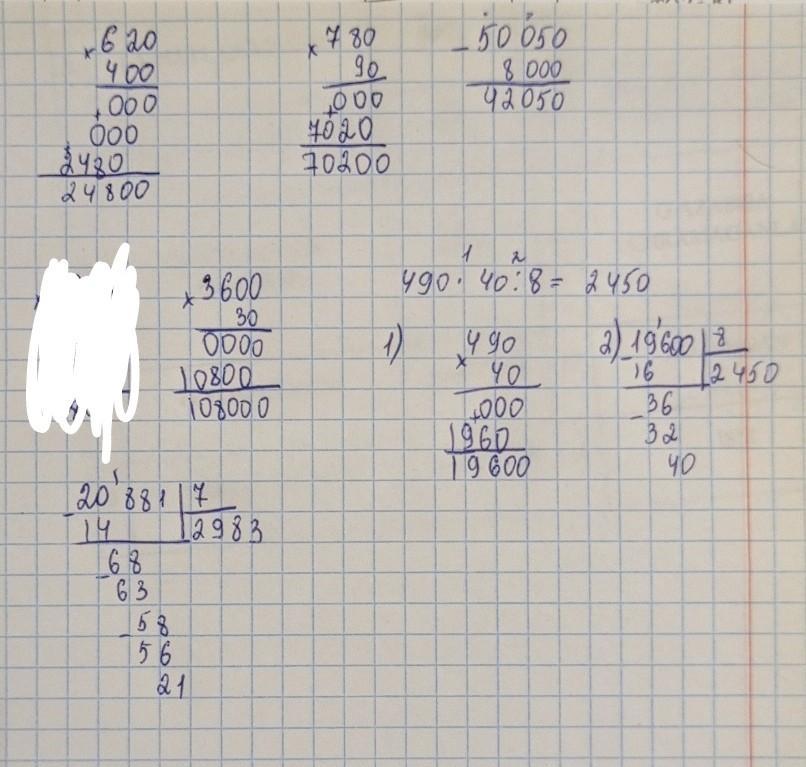 × 620
400
+ 000
000
2480
24800
× 780
90
+ 000
7020
70200
- 50050
8000
42050
× 3600
30
0000
10800
108000
1 2
490 · 40 : 8 = 2450
1) × 490
40
+ 000
1960
19600
2) - 19'600 | 8
16 | 2450
- 36
32
40
- 20'881 | 7
14 | 2983
- 68
63
- 58
56
21